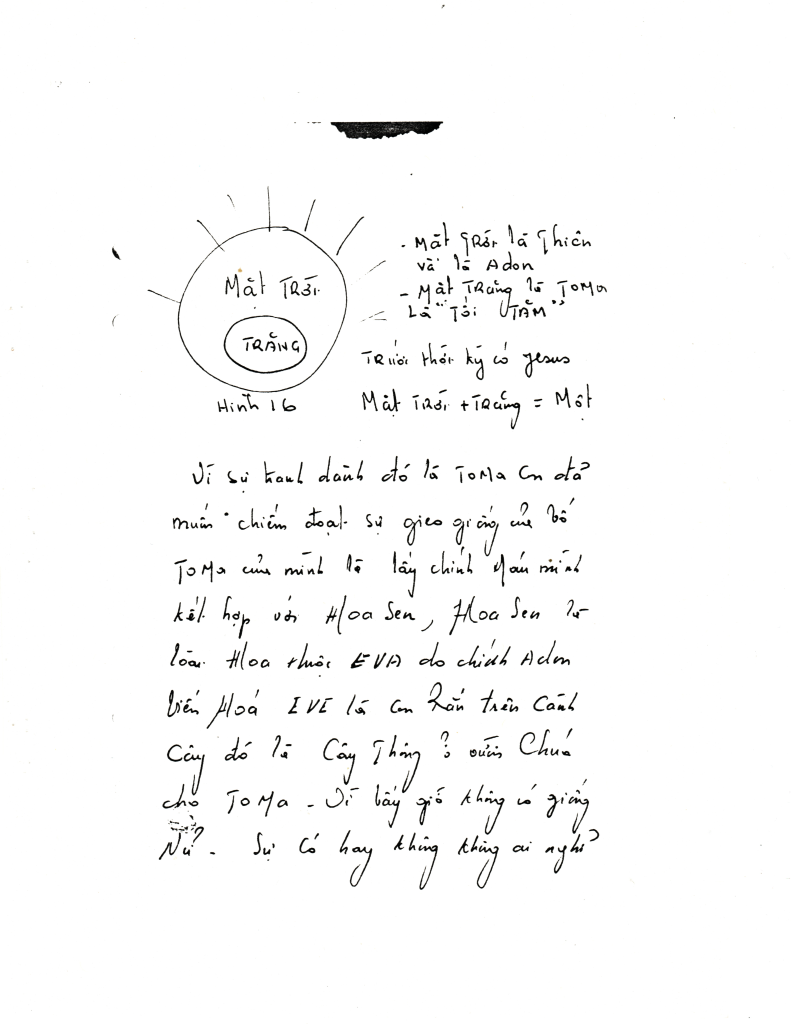 MẶT TRỜI
TRĂNG
Hình 16
- Mặt Trời là Thiên
và là Adon
- Mặt Trăng là TOMA
Là "Tối TĂM"
TRước thời kỳ có Jesus
Mặt TRời + TRăng = Một
Vì sự tranh dành đó là TOMA Con đã
muốn chiếm đoạt sự gieo giống của bố
TOMA của mình là lấy chính Máu mình
kết hợp với Hoa Sen, Hoa Sen là
loài Hoa thuộc EVA do chính Adon
biến Hoá EVE là con Rắn trên Cành
Cây đó là Cây Thông ở vườn Chúa
cho TOMA - Vì bấy giờ không có giống
Nữ. Sự Có hay không không ai nghĩ